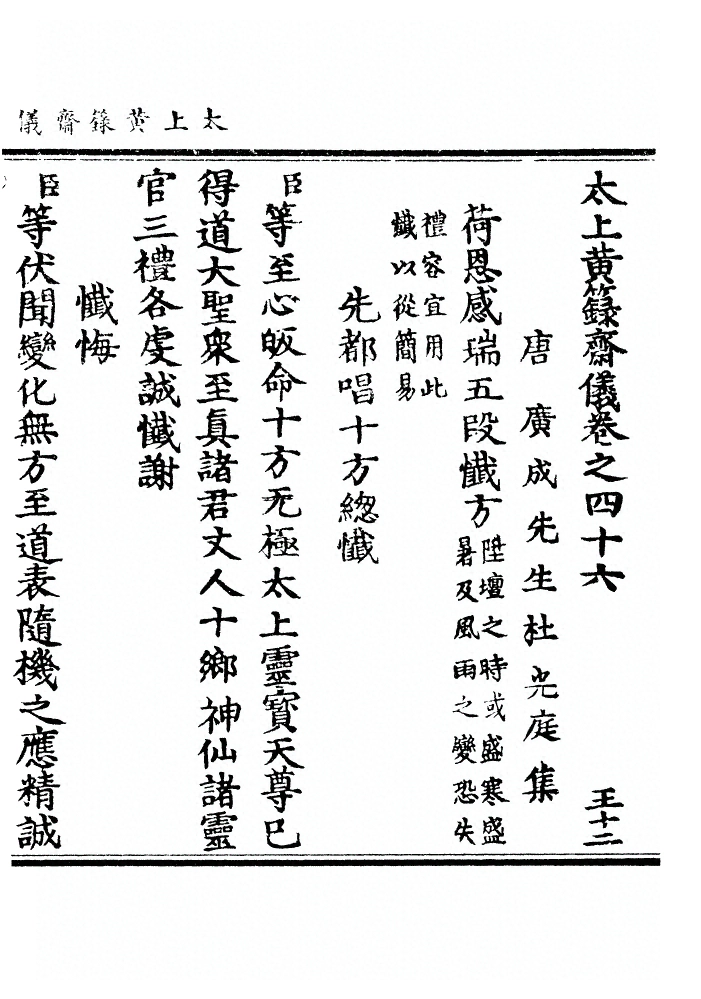 太上黄籙齋儀
太上黄籙齋儀卷之四十六 王十二
唐廣成先生杜光庭集
荷恩感瑞五段懺方 陞壇之時或盛寒盛
暑及風雨之變恐失
禮容宜用此
懺以從簡易
先都唱十方緫懺
臣等至心皈命十方无極太上靈寶天尊已
得道大聖衆至真諸君丈人十鄉神仙諸靈
官三禮各虔誠懺謝
懺悔
臣等伏聞變化無方至道表隨機之應精誠